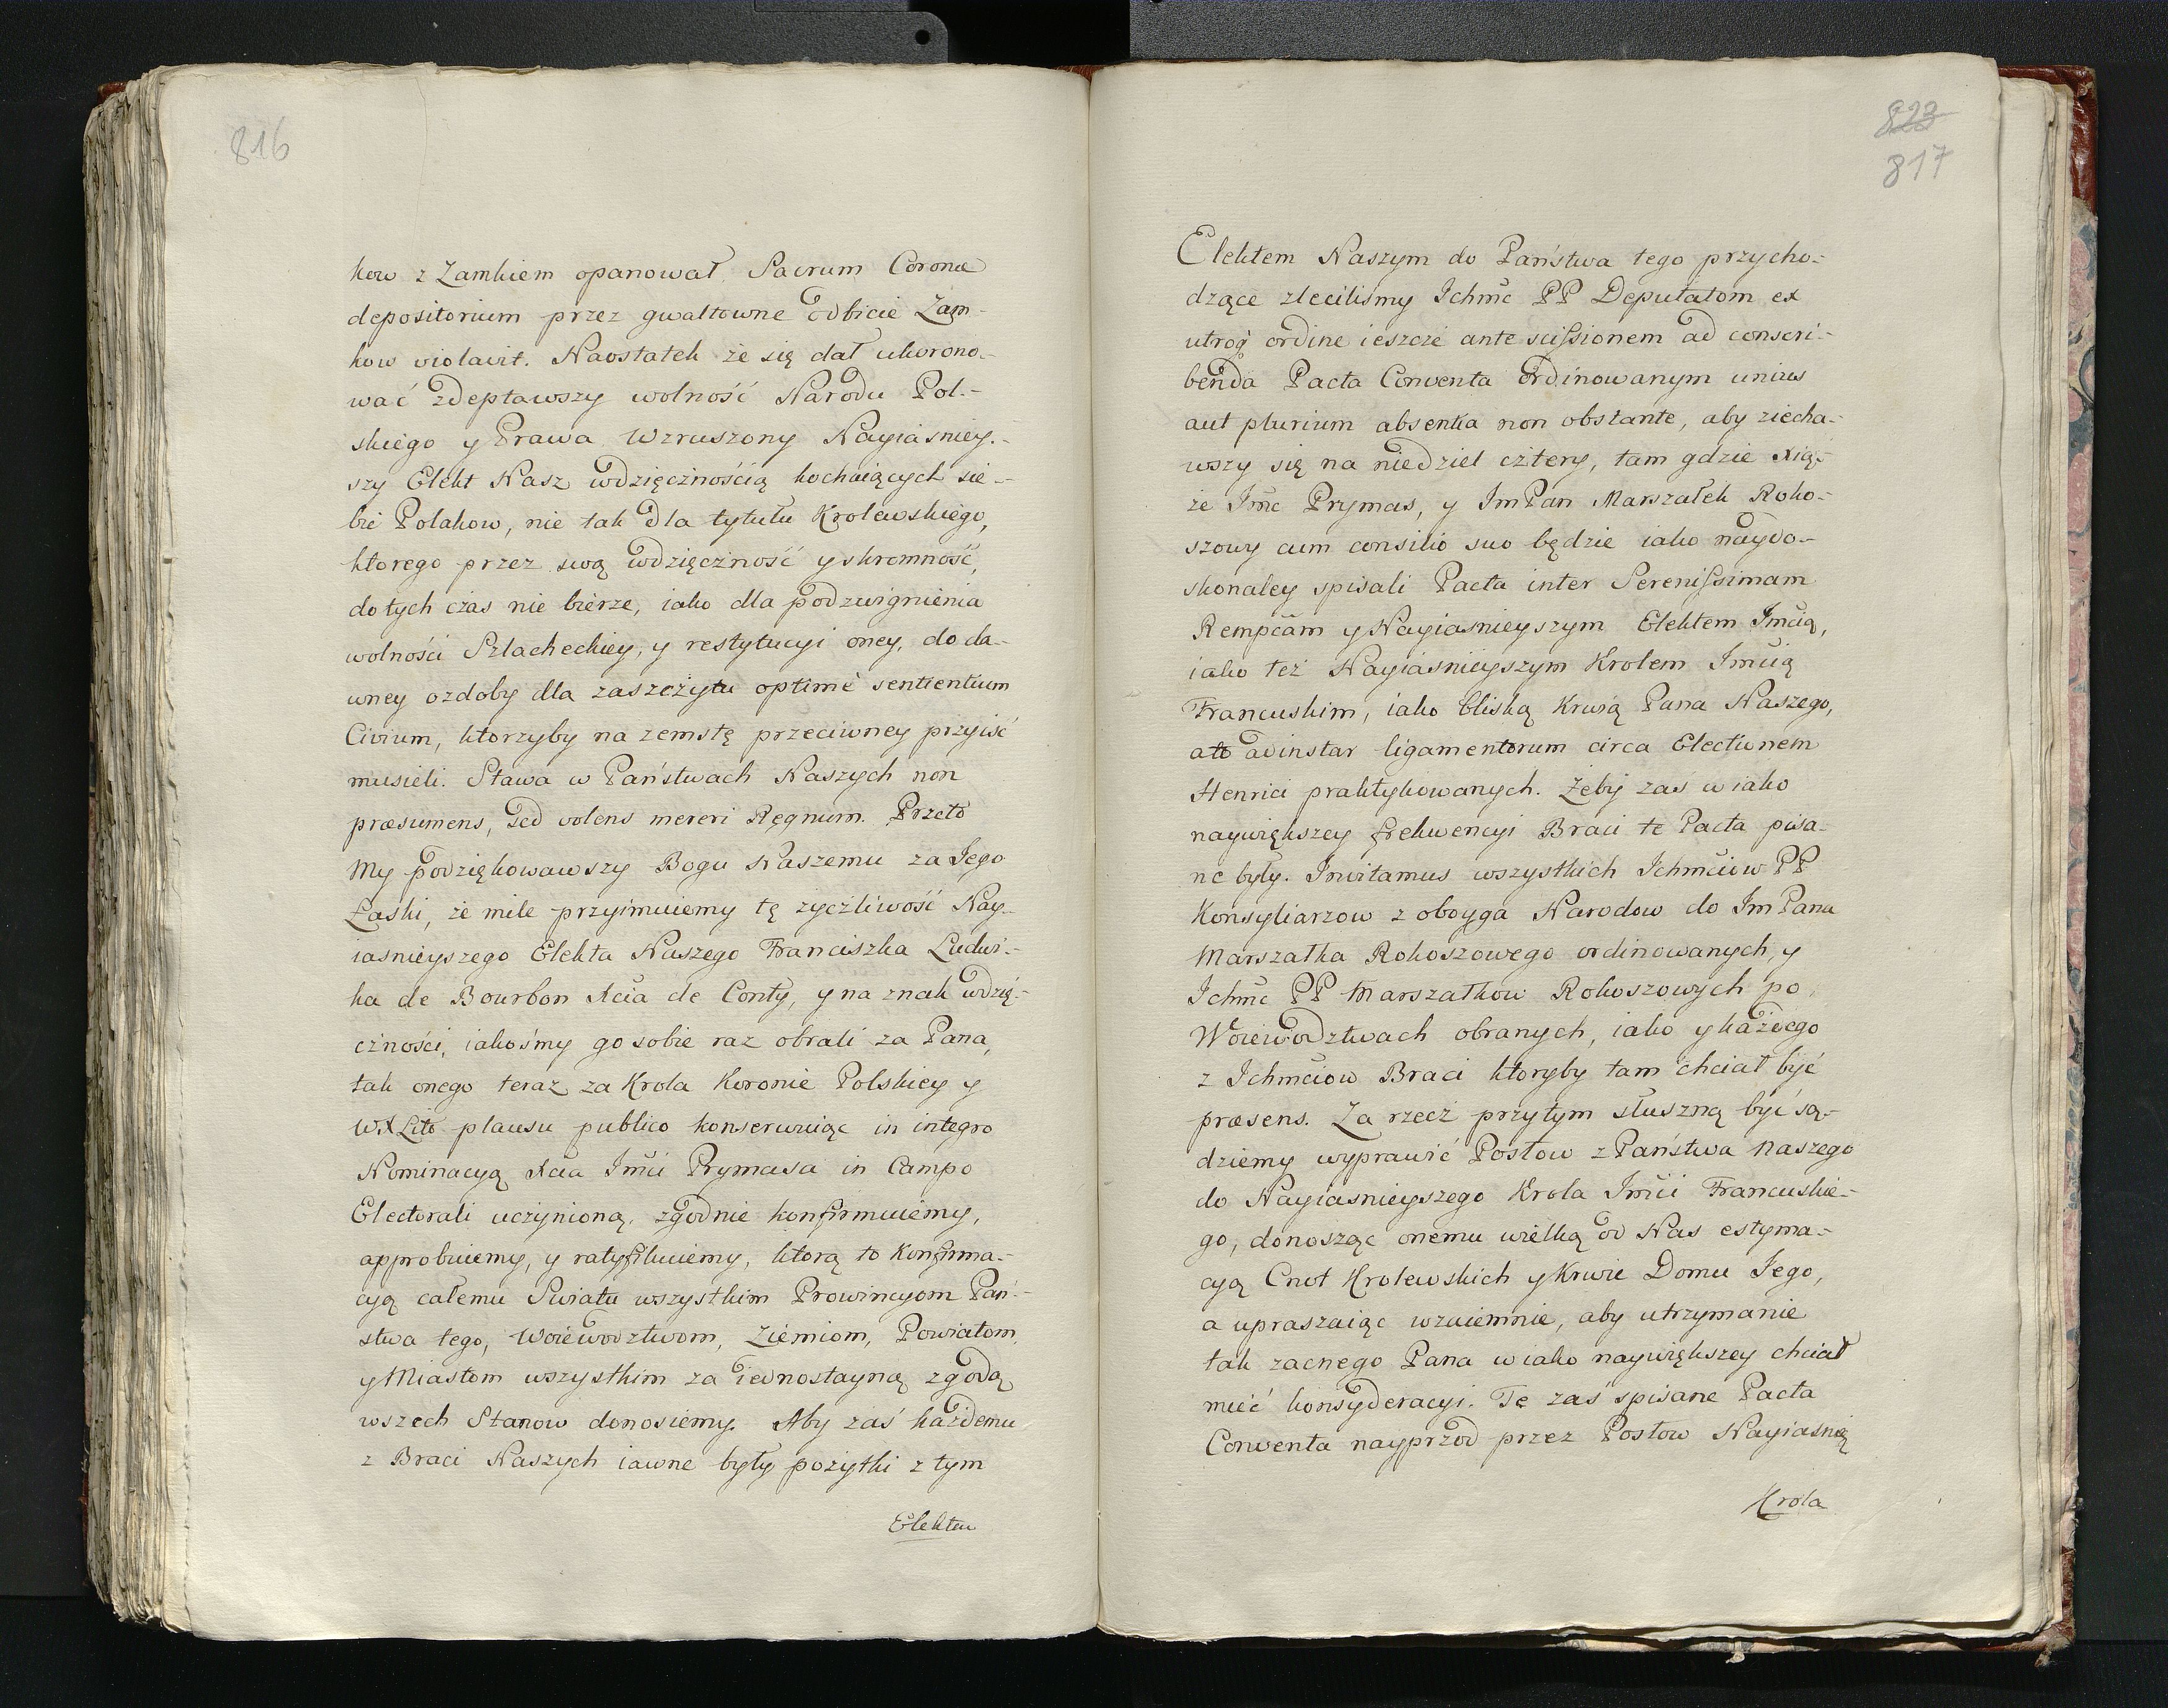 816
kow z Zamkiem opanował. Sacrum Coronæ
depositorium przez gwałtowne odbicie Zam-
kow violavit. Naostatek że się dał ukorono-
wać zdeptawszy wolność Narodu Pol-
skiego y Prawa. Wzruszony Nayiasniey-
szy Elekt Nasz wdzięcznością kochaiących sie-
bie Polakow, nie tak dla tytułu Krolewskiego,
ktorego przez swą wdzięczność y skromność,
do tych czas nie bierze, iako dla podzwignienia
wolności Szlacheckiey, y restytucyi oney, do da-
wney ozdoby dla zaszczytu optimè sentientium
Civium, ktorzyby na zemstę przeciwney przyiść
musieli. Stawa w Państwach Naszych non
præsumens, sed volens mereri Regnum. Przeto
My podziękowawszy Bogu Naszemu za Jego
Łaski, że mile przyimuiemy tę życzliwość Nay-
iasnieyszego Elekta Naszego Franciszka Ludwi-
ka de Bourbon Xcia de Conty, y na znak wdzię-
czności, iakośmy go sobie raz obrali za Pana,
tak onego teraz za Krola Koronie Polskiey y
WXLitō plausu publico konserwuiąc in integro
Nominacyą Xcia Imci Prymasa in Campo
Electorali uczynioną, zgodnie konfirmuiemy,
approbuiemy, y ratyfikuiemy, ktorą to Konfirma-
cyą całemu Swiatu wszystkim Prowincyom Pań-
stwa tego, Woiewodztwom, Ziemiom, Powiatom,
y Miastom wszystkim za iednostayną zgodą
wszech Stanow donosiemy. Aby zaś każdemu
z Braci Naszych iawne były pożytki z tym
Elektem
823
817
Elektem Naszym do Państwa tego przycho-
dzące zleciliśmy Ichmć PP Deputatom ex
utroq ordine ieszcze ante scissionem ad conscri-
benda Pacta Conventa ordinowanym unius
aut plurium absentia non obstante, aby ziecha-
wszy się na niedziel cztery, tam gdzie Xią-
że Imć Prymas, y ImPan Marszałek Roko-
szowy cum consilio suo będzie iako naydo-
skonaley spisali Pacta inter Serenissimam
Rempcam y Nayiasnieyszym Elektem Imcią,
iako też Nayiasnieyszym Krolem Imcią
Francuskim, iako bliską Krwią Pana Naszego,
a to ad instar ligamentorum circa Electionem
Henrici praktykowanych. Żeby zaś w iako
naywiększey frekwencyi Braci te Pacta pisa-
ne były. Invitamus wszystkich Ichmciow PP
Konsyliarzow z oboyga Narodow do Im Pana
Marszałka Rokoszowego ordinowanych, y
Ichmć PP Marszałkow Rokoszowych po
Woiewodztwach obranych, iako y każdego
z Ichmciow Braci ktoryby tam chciał byc
præsens. Za rzecz przytym słuszną być są-
dziemy wyprawić Posłow z Państwa Naszego
do Nayiasnieyszego Krola Imci Francuskie-
go, donosząc onemu wielką od Nas estyma-
cyą Cnot Krolewskich y Krwie Domu Jego,
a upraszaiąc wzaiemnie, aby utrzymanie
tak zacnego Pana w iako naywiększey chciał
mieć konsyderacyi. Te zaś spisane Pacta
Conventa nayprzod przez Posłow Nayiasniey
Krola